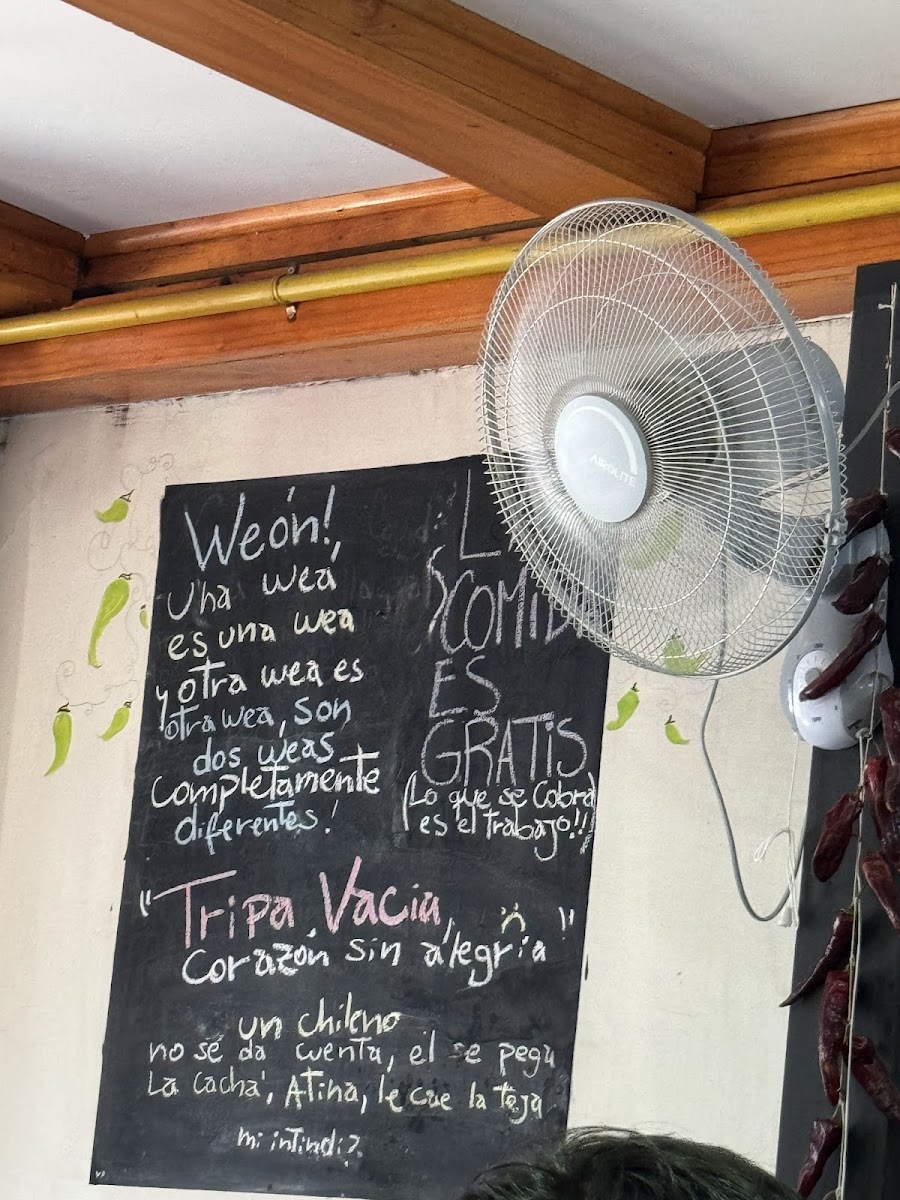 Weón!,
Una wea
es una wea
y otra wea es
otra wea, son
dos weas
completamente
diferentes!
COMID
ES
GRATIS
(Lo que se cobra)
es el trabajo!!!
"Tripa Vacia,
Corazón sin alegria"
un chileno
no sé da cuenta, el se pega
La cachá, Atina, le cae la teja
mi intindi?
AIROLITE
OFF